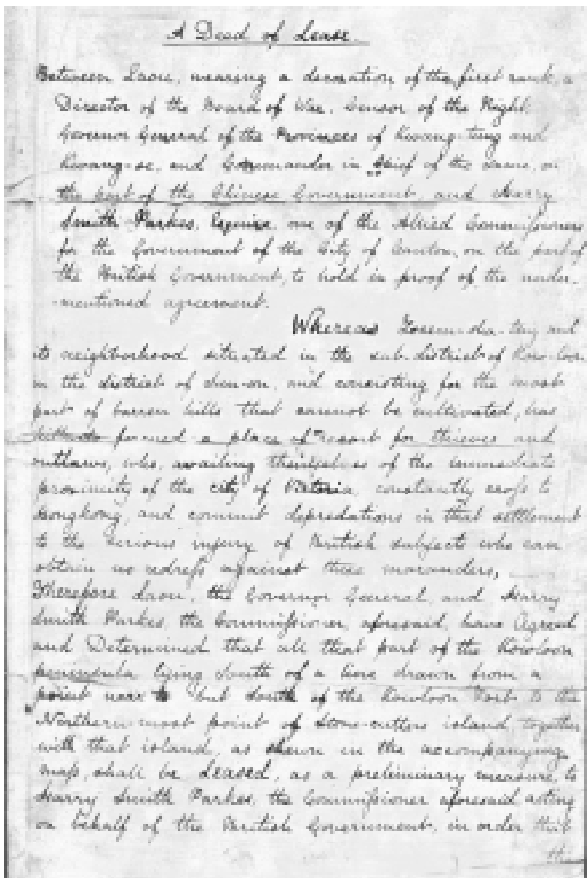 A Deed of Lease.
Between Laou, wearing a decoration of the first rank, a
Director of the Board of War, Censor of the Right
Governor General of the Provinces of Kwang-tung and
Kwang-se, and Commander in Chief of the on
the part of the Chinese Government, and Harry
Smith Parkes, Esquire, one of the Allied Commissioners
for the Government of the City of Canton, on the part of
the British Government, to hold in proof of the under-
-mentioned agreement.
Whereas Tseen-sha-tsuy and
its neighborhood situated in the sub-district of Kow-loon
in the district of and consisting for the most
part of barren hills that cannot be cultivated, has
hitherto formed a place of resort for thieves and
outlaws, who, availing themselves of the immediate
proximity of the city of Victoria, constantly cross to
Hongkong, and commit depredations in that settlement
to the serious injury of British subjects who can
obtain no redress against these marauders,
Therefore Laou, the Governor General, and Harry
Smith Parkes, the Commissioner, aforesaid, have Agreed
and Determined that all that part of the Kowloon
peninsula lying South of a line drawn from a
point near to but South of the Kowloon Fort to the
Northern-most point of Stone-cutters island together
with that island, as shewn in the accompanying
map, shall be Leased, as a preliminary measure, to
Harry Smith Parkes, the Commissioner aforesaid acting
on behalf of the British Government, in order that
the